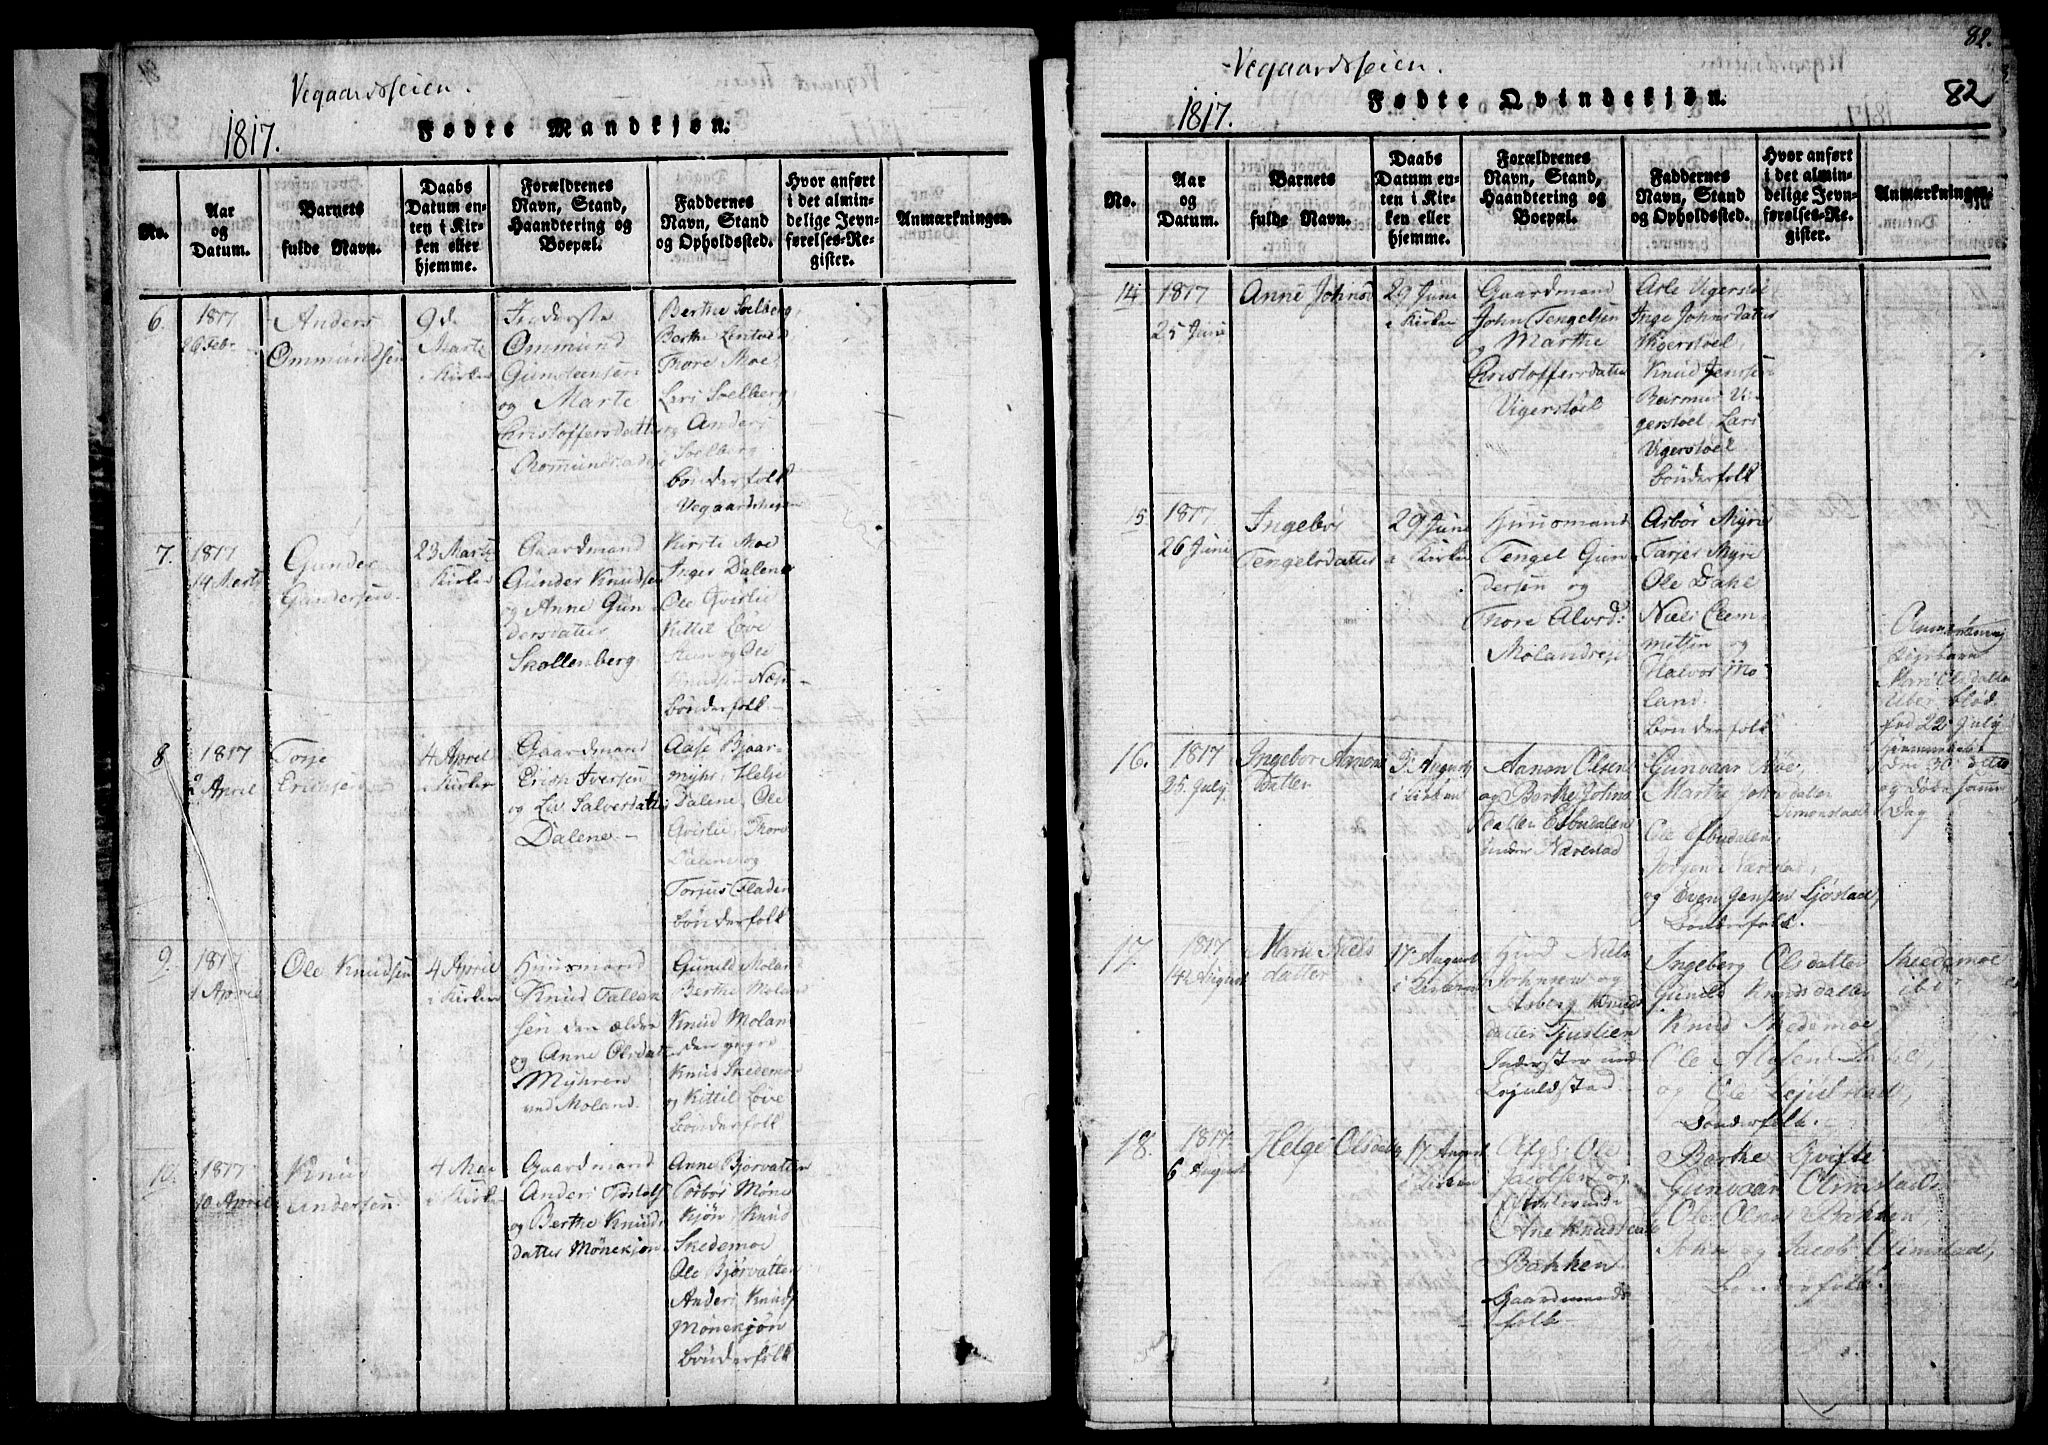 Vegaardsseien.
1817.
Fødte Mandkjøn.
No.
Aar
og
Datum.
Barnets
fulde Navn.
Daabs
Datum en-
ten i Kir-
ken eller
hjemme.
Forældrenes
Navn, Stand,
Haandtering og
Boepæl.
Faddernes
Navn, Stand
og Opholdssted.
Hvor anført
i det almin-
delige Jevn-
førelses-Re-
gister.
Anmærkninger.
6.
1817
26 Febr.
Anders
Ommundsen
9de
Marts
i Kirken
Inderste
Ommund
Gunsteensen
og Marte
Christoffersdatter
Berthe Soelberg,
Berthe Lintved
Thore Moe,
Lars Soelberg,
og Anders
Soelberg
bønderfolk
Vegaardsheyen
7.
1817
14 Marts
Gunder
Gundersen
23 Marts
i Kirken
Gaardmand
Gunder Knudsen
og Anne Gun
dersdatter
Skollenberg
Kirste Moe
Inger Dalene
Ole Qvislie
Kittil Løve
og Ole
Knudsen Næs
bønderfolk
8
1817
2 April
Torje
Ericksen
4 April
i Kirken
Gaardmand
Erich Iversen
og Liv Salversdatter
Dalene
Aase Bjaar-
myhr, Helje
Dalene, Ole
Qvislie, Thore
Dalene og
Torjus Fladen
bønderfolk
9.
1817
1 April
Ole Knudsen
4 April
i Kirken
Huusmand
Knud Tallak
sen den ældre
og Anne Olsdatter
Myhren
ved Moland.
Gunild Moland
Berthe Moland
Knud Moland
den yngre
Knud Skedemoe
og Kittil Løve
Bønderfolk
10.
1817
10 April
Knud
Andersen
4 Mai
i Kirken
Gaardmand
Anders
og Berthe Knuds
datter Mönekjøn
Anne Bjorvatten
Mönekjøn, Knud
Skedemoe
Ole Bjørvatten
Anders Knuds
Mönekjøn
bønderfolk
82.
Vegaardsseien.
1817.
Fødte Qvindekjøn.
82
No.
Aar
og
Datum.
Barnets
fulde Navn.
Daabs
Datum en-
ten i Kir-
ken eller
hjemme.
Forældrenes
Navn, Stand,
Haandtering og
Boepæl.
Faddernes
Navn, Stand
og Opholdssted.
Hvor anført
i det almin-
delige Jevn-
førelses-Re-
gister.
Anmærkninger.
14
1817
25 Juni
Anne Johnsd
29 June
i Kirken
Gaardmand
John Tengelsen
og Marthe
Christoffersdatter
Vigerstøel
Arle Vigerstøel
Inge Johnsdatter
Vigerstøel
Knud Jensen
Vi-
gerstøel, Lars
Vigerstøel
bønderfolk
15
1817
26 Juni
Ingebør
Tengelsdatter
29 June
i Kirken
Huusmand
Tengel Gun
dersen og
Thore Alvsd:
Asbør Myre
Tarjer Myre
Ole Dahl
Niels Clem-
metsen og
Halvor Mo-
land.
bønderfolk
16.
1817
25 July
Ingebor Aanons
Datter
August
i Kirken
Aanon Olsen
og Berthe Johns
datter Esbudalen
under Nævestad
Gunvaar
Marthe Johnsdatter
Simonstad
Ole Esbudalen,
Jørgen Nævestad,
og Even Jensen Ljøstad,
Bønderfolk.
Anmærkning
Marie Olsdatter
fød 22 July
hjemmedøbt
den 30 dito
og døde samme
Dag
17.
1817
14 August
Karie Niels
datter
17 August
i Kirken
Niels
Johnsen og
Asberg Knuds
datter
Inderster under
Lojulstad
Ingeborg Olsdatter
Gunild Knudsdatter
Knud Skedemoe,
Ole
og Ole Lejulstad,
Bønderfolk.
Skedemoe
18.
1817
6 August
Helge Olsdatter
17 August
i Kirken
Ole
Jacobsen og
Ane Knudsdatter
Bakken
Gaardmands
folk
Berthe
Gunvaar Olimstad
Ole Olsen Bakken,
John og Jacob Olimstad,
Bønderfolk.